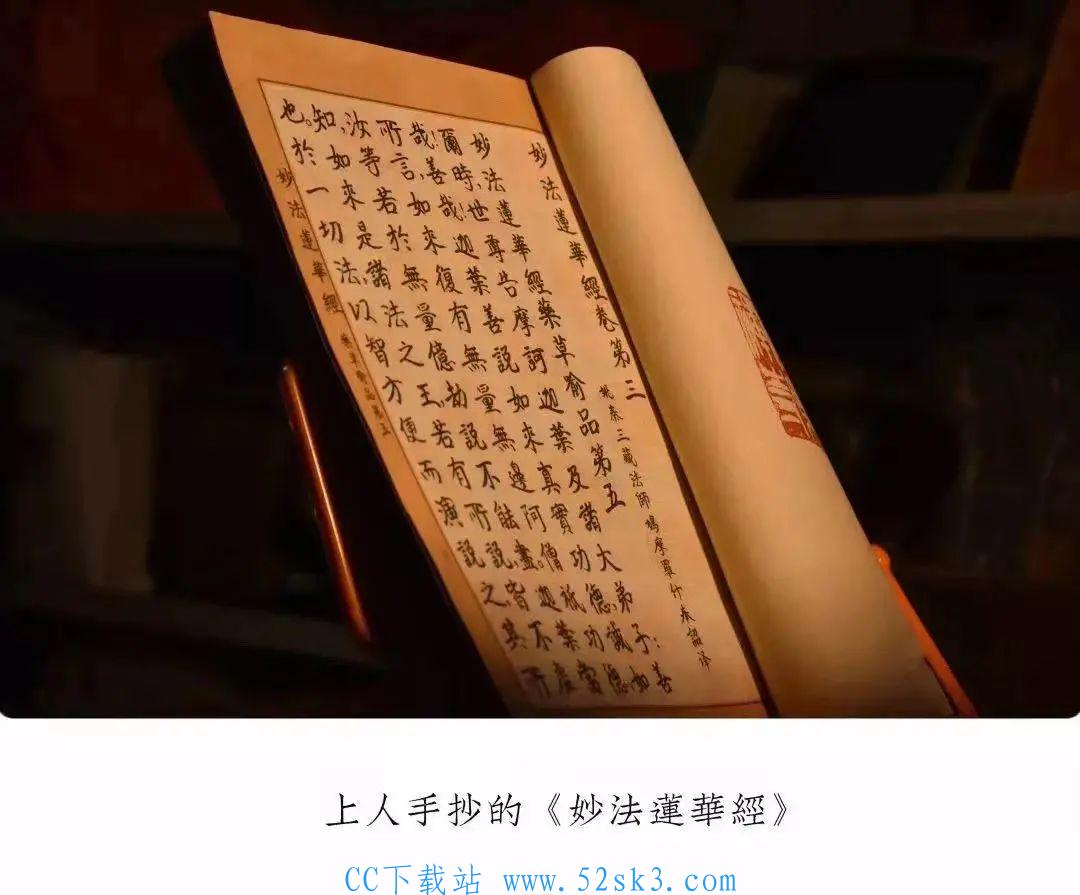 妙法蓮華經卷第三
姚秦三藏法師鳩摩羅什奉詔译
妙法蓮華經藥草喻品第五
爾時,世尊告摩訶迦葉及諸大弟子:善
哉!善哉!迦葉善說如來真實功德,誠如
所言,如來復有無量無邊阿僧祇功德,
汝等若於無量億劫說不能盡。迦葉當
知,如來是諸法之王,若有所說,皆不虛
也。於一切法,以智方便而演說之,其所
妙法蓮華經 藥草喻品第五
上人手抄的《妙法蓮華經》
CC下载站 www.52sk3.com